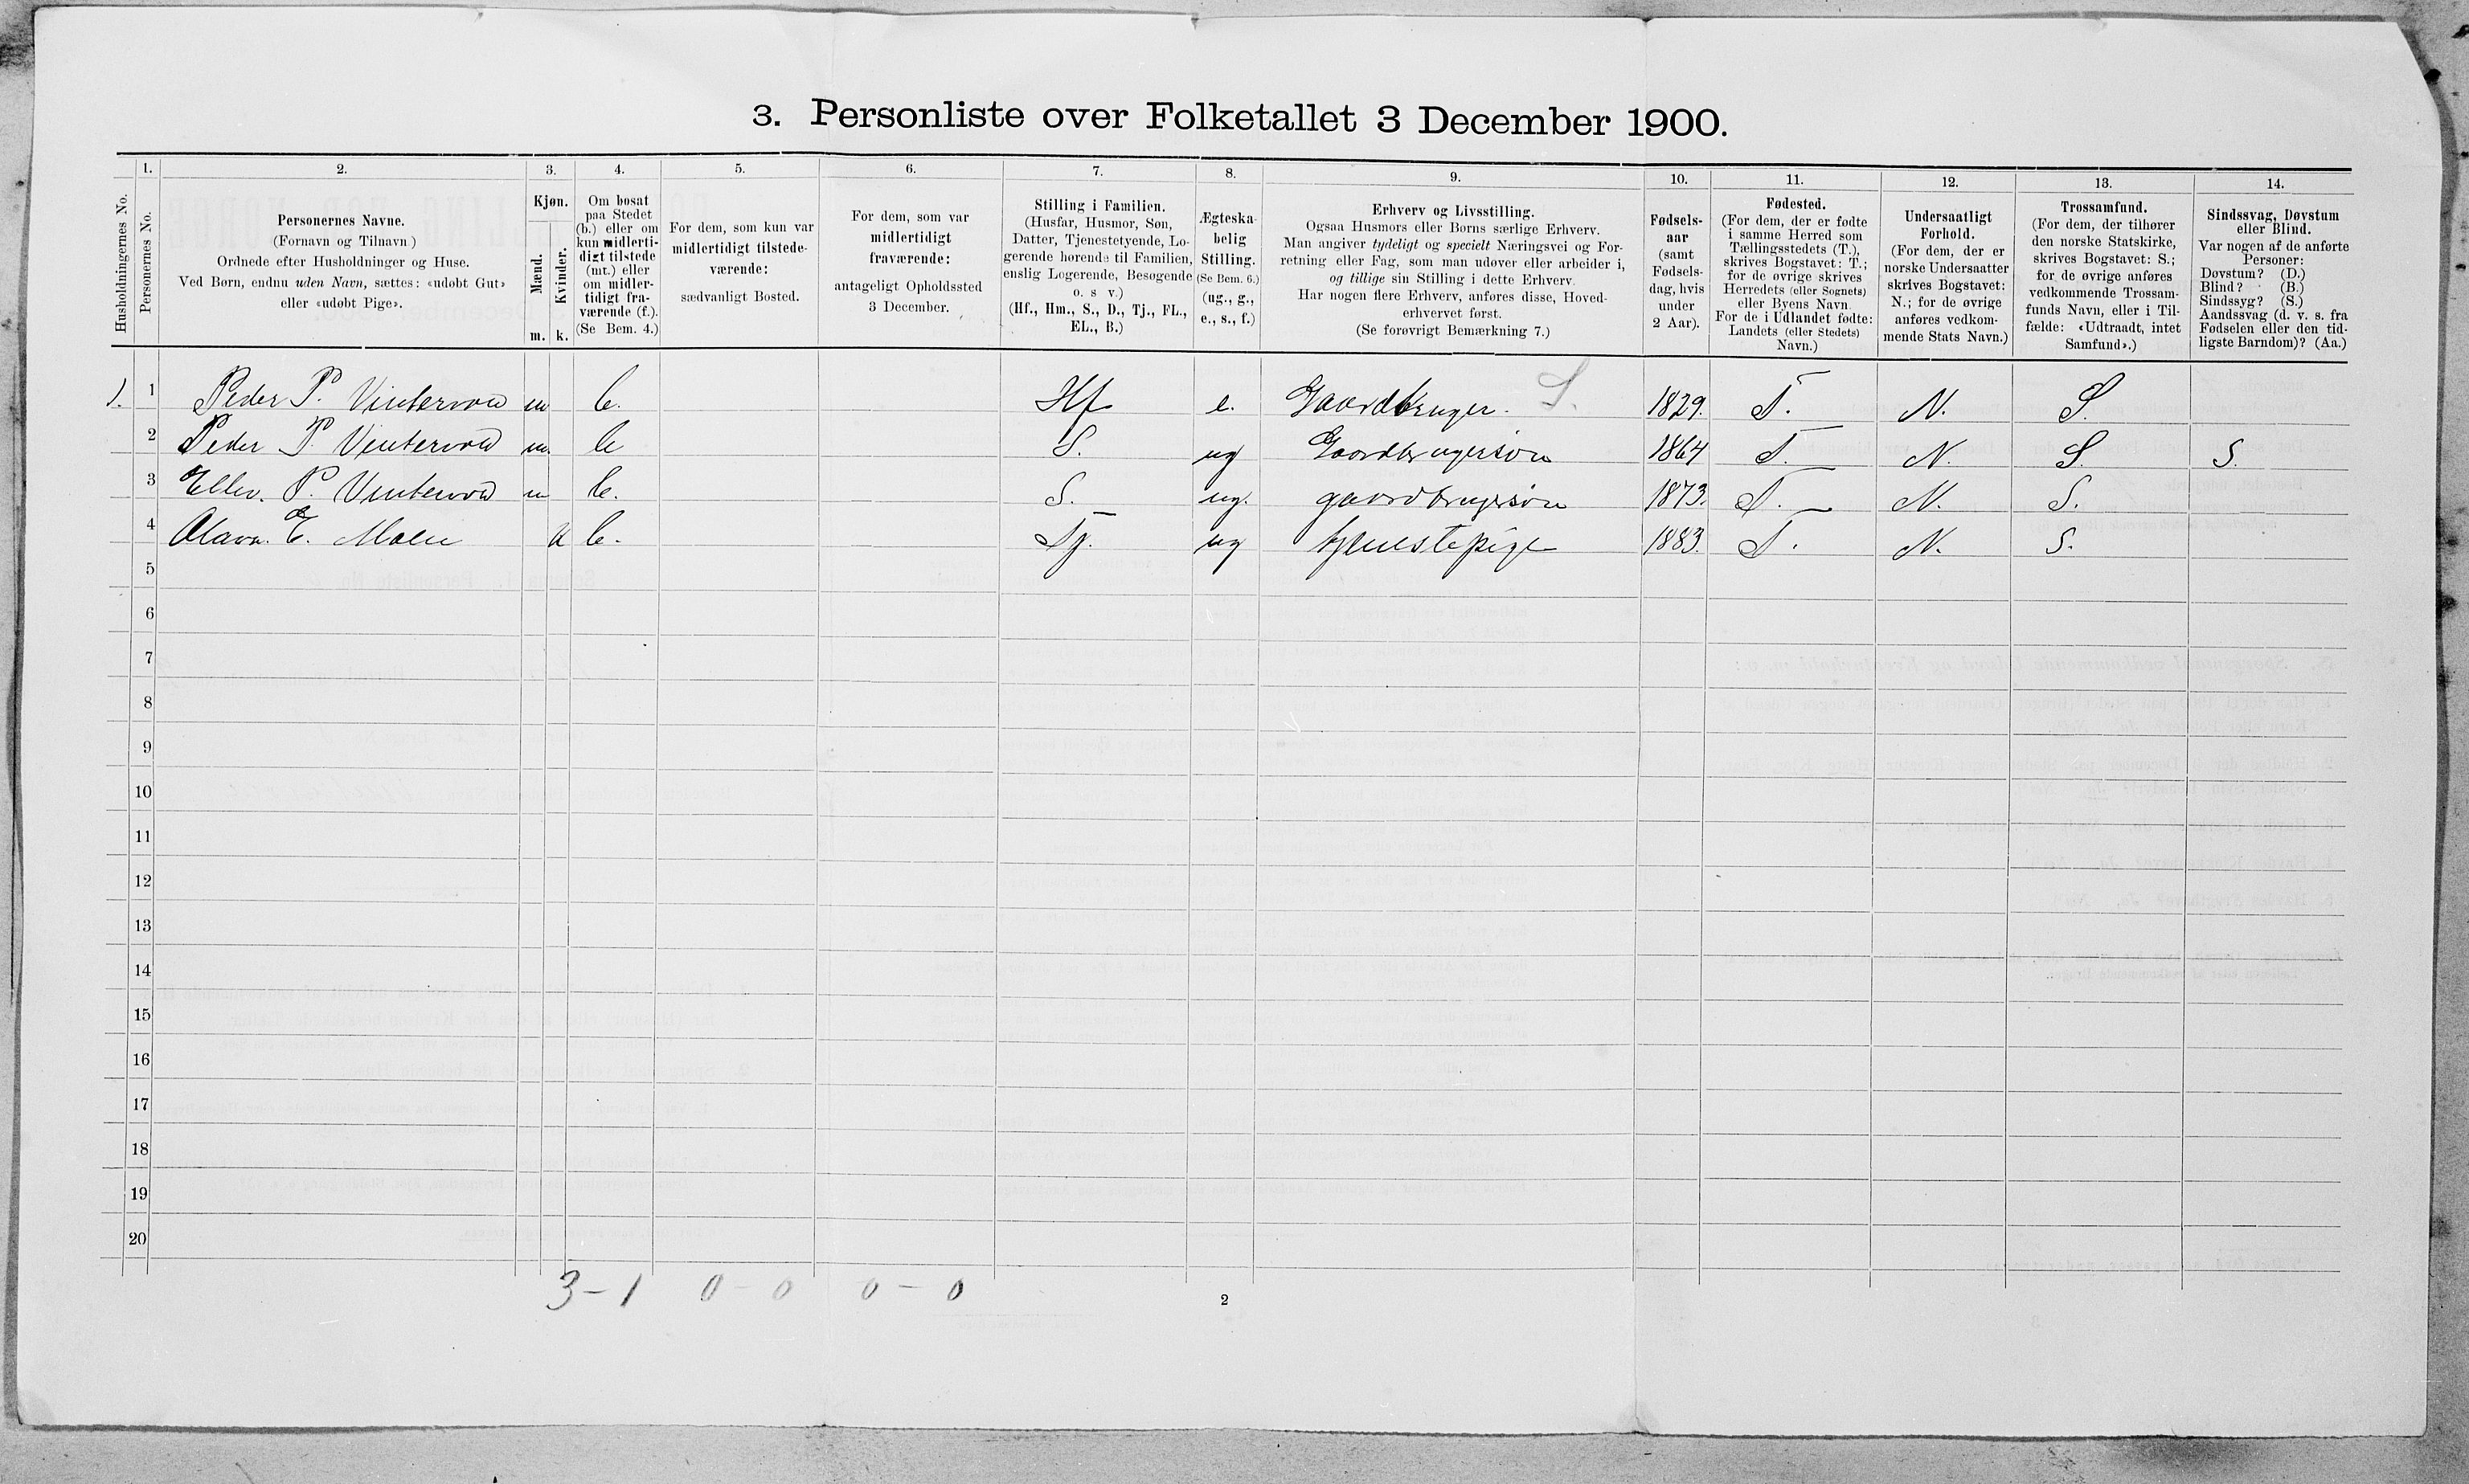 3. Personliste over Folketallet 3 December 1900.
Husholdningernes No.
1.
Personernes No.
2.
Personernes Navne.
(Fornavn og Tilnavn)
Ordnede efter Husholdninger og Huse.
Ved Børn, endnu uden Navn, sættes: «udøbt Gut»
eller «udøbt Pige».
3.
Kjøn.
Mænd.
Kvinder.
m. k.
4.
Om bosat
paa Stedet
(b.) eller om
kun midlerti-
digt tilstede
(mt.) eller
om midler-
tidigt fra-
værende (f.).
(Se Bem. 4.)
5.
For dem, som kun var
midlertidigt tilstede-
værende:
sædvanligt Bosted.
6.
For dem, som var
midlertidigt
fraværende:
antageligt Opholdssted
3 December.
7.
Stilling i Familien.
(Husfar, Husmor, Søn,
Datter, Tjenestetyende, Lo-
gerende hørende til Familien,
enslig Logerende, Besøgende
o. s v.)
(Hf., Hm., S., D., Tj., FL.,
EL., B.)
8.
Ægteska-
belig
Stilling.
(Se Bem. 6.)
(ug., g.,
e., s., f.)
9.
Erhverv og Livsstilling.
Ogsaa Husmors eller Børns særlige Erhverv.
Man angiver tydeligt og specielt Næringsvei og For-
retning eller Fag, som man udøver eller arbeider i,
og tillige sin Stilling i dette Erhverv.
Har nogen flere Erhverv, anføres disse, Hoved-
erhvervet først.
(Se forøvrigt Bemærkning 7.)
10.
Fødsels-
aar
(samt
Fødsels-
dag, hvis
under
2 Aar).
11.
Fødested.
(For dem, der er fødte
i samme Herred som
Tællingsstedets (T.),
skrives Bogstavet: T.;
for de øvrige skrives
Herredets (eller Sognets)
eller Byens Navn.
For de i Udlandet fødte:
Landets (eller Stedets)
Navn.)
12.
Undersaatligt
Forhold.
(For dem, der er
norske Undersaatter
skrives Bogstavet:
N.; for de øvrige
anføres vedkom-
mende Stats Navn.)
13.
Trossamfund.
(For dem, der tilhører
den norske Statskirke,
skrives Bogstavet: S.;
for de øvrige anføres
vedkommende Trossam-
funds Navn, eller i Til-
fælde: «Udtraadt, intet
Samfund».)
14.
Sindssvag, Døvstum
eller Blind.
Var nogen af de anførte
Personer:
Døvstum? (D.)
Blind? (B.)
Sindssyg? (S.)
Aandssvag (d. v. s. fra
Fødselen eller den tid-
ligste Barndom)? (Aa.)
1. 1 Peder P. Vintervold m b. Hf e. Gaardbruger. S. 1829. T. N. S.
2 Peder P. Vintervold m. b S. ug Gaardbrugersøn 1864 T. N. S. S.
3 P. Vintervold m b. S. ug. gaardbrugersøn 1873. T. N. S.
4 Olava. E. Moen k b. Tj. ug tjenestepige 1883. T. N. S.
5
6
7
8
9
10
11
12
13
14
15
16
17
18
19
20
3 - 1 0 - 0 0 - 0
2